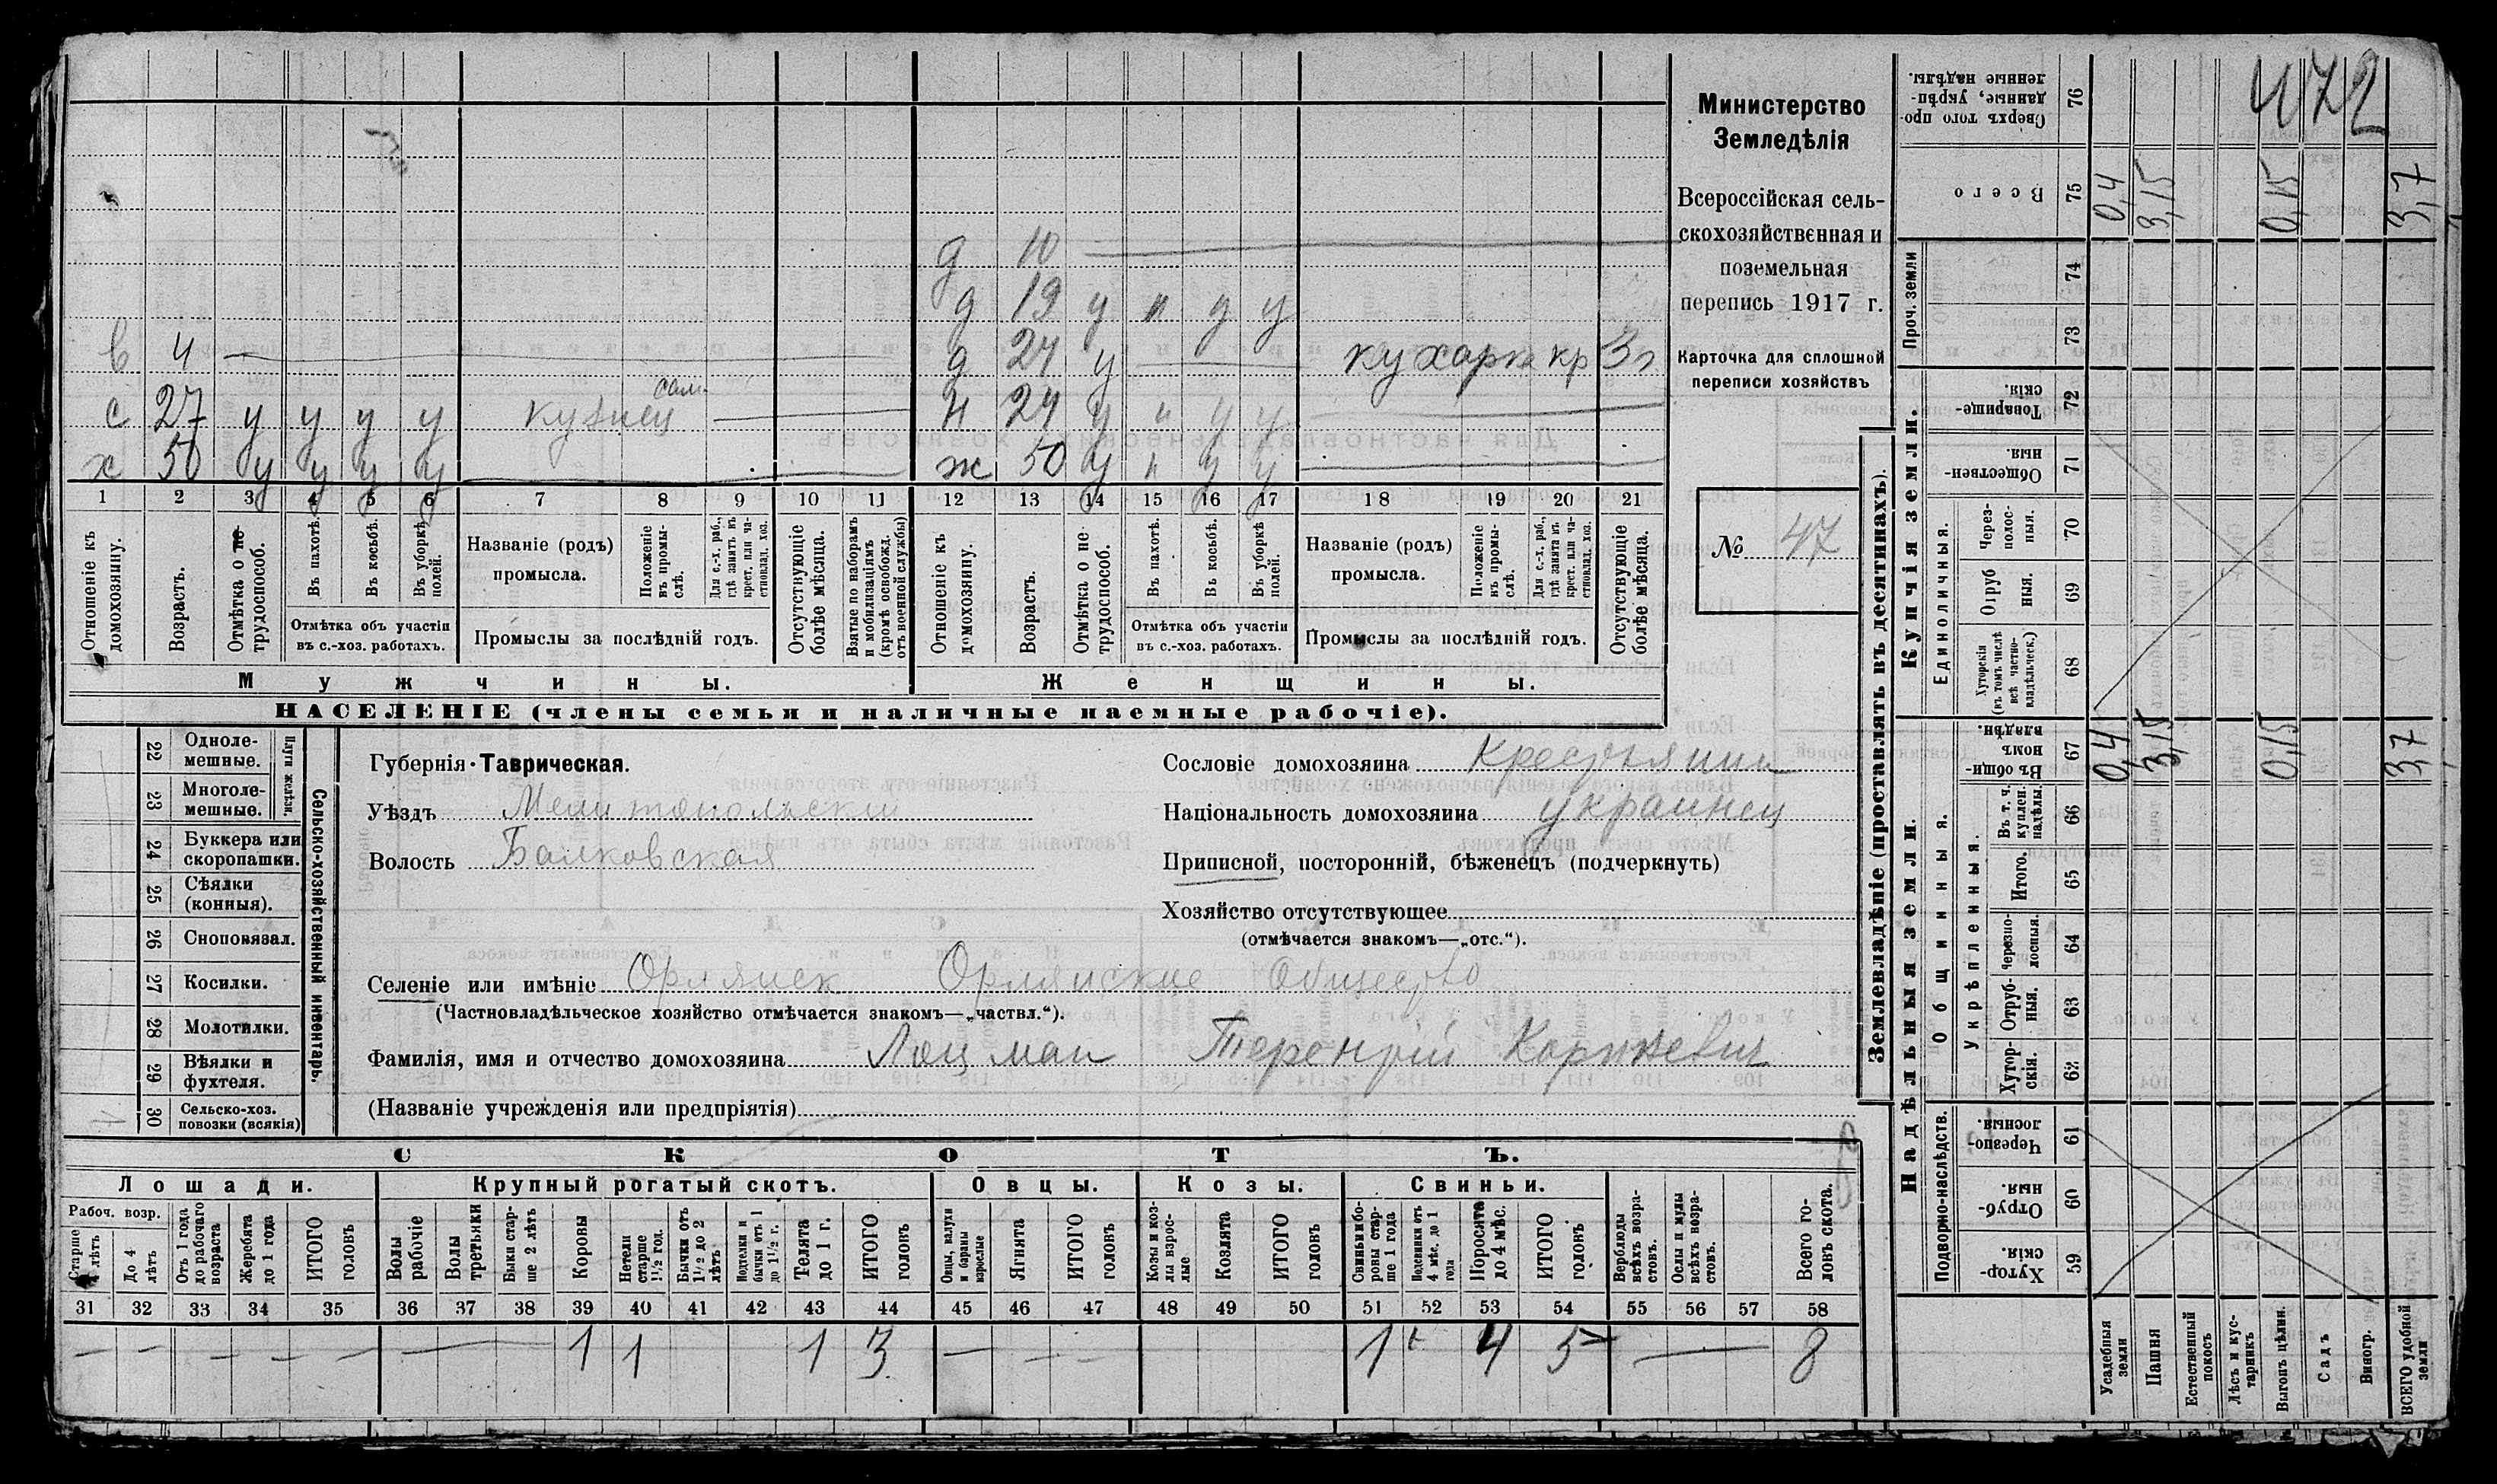 472
Министерство
Земледѣлія
Всероссійская сель-
скохозяйственная и
поземельная
перепись 1917 г.
Карточка для сплошной
переписи хозяйствъ
№ 47
д 10
д 19 у н у у
в 4 — д 24 у — кухарка кр 3 г
сам.
с 27 у у у у кузнец — н 24 у н у у —
х 50 у у у у — ж 50 у н у у —
1 2 3 4 5 6 7 8 9 10 11 12 13 14 15 16 17 18 19 20 21
Отношеніе къ домохозяину.
Возрастъ.
Отмѣтка о не трудоспособ.
Въ пахотѣ.
Въ косьбѣ.
Въ уборкѣ полей.
Отмѣтка объ участіи въ с.-хоз. работахъ.
Названіе (родъ) промысла.
Положеніе въ промыслѣ.
Для с.-х. раб., гдѣ занятъ въ крест. или частновлад. хоз.
Промыслы за послѣдній годъ.
Отсутствующіе болѣе мѣсяца.
Взятые по наборамъ и мобилизаціямъ (кромѣ освобожд. отъ военной службы)
Отношеніе къ домохозяину.
Возрастъ.
Отмѣтка о не трудоспособ.
Въ пахотѣ.
Въ косьбѣ.
Въ уборкѣ полей.
Отмѣтка объ участіи въ с.-хоз. работахъ.
Названіе (родъ) промысла.
Положеніе въ промыслѣ.
Для с.-х. раб., гдѣ занятъ въ крест. или частновлад. хоз.
Промыслы за послѣдній годъ.
Отсутствующіе болѣе мѣсяца.
Мужчины. Женщины.
НАСЕЛЕНІЕ (члены семьи и наличные наемные рабочіе).
Сельско-хозяйственный инвентарь.
Плуги желѣзн.
22 Одноле-мешные.
23 Многоле-мешные.
24 Буккера или скоропашки.
25 Сѣялки (конныя).
26 Сноповязал.
27 Косилки.
28 Молотилки.
29 Вѣялки и фухтеля.
30 Сельско-хоз. повозки (всякія)
Губернія · Таврическая.
Уѣздъ Мелитопольский
Волость Балковская
Сословіе домохозяина Крестьянин
Національность домохозяина украинец
Приписной, посторонній, бѣженецъ (подчеркнуть)
Хозяйство отсутствующее
(отмѣчается знакомъ—„отс.“).
Селеніе или имѣніе Орлянск Орлянское Общество
(Частновладѣльческое хозяйство отмѣчается знакомъ—„частвл.“).
Фамилія, имя и отчество домохозяина Лоцман Терентій Корнѣевич
(Названіе учрежденія или предпріятія)
СКОТЪ.
Лошади. Крупный рогатый скотъ. Овцы. Козы. Свиньи.
Рабоч. возр.
Старше 4 лѣтъ
До 4 лѣтъ
Отъ 1 года до рабочаго возраста
Жеребята до 1 года
ИТОГО головъ
Волы рабочіе
Волы третьяки
Быки старше 2 лѣтъ
Коровы
Нетели старше 1½ год.
Бычки отъ 1½ до 2 лѣтъ
Подтелки и бычки отъ 1 до 1½ г.
Телята до 1 г.
ИТОГО головъ
Овцы, валухи и бараны взрослые
Ягнята
ИТОГО головъ
Козы и козлы взрослые
Козлята
ИТОГО головъ
Свиньи боровы старше 1 года
Подсвинки отъ 4 мѣс. до 1 года
Поросята до 4 мѣс.
ИТОГО головъ
Верблюды всѣхъ возрастовъ.
Ослы и мулы всѣхъ возрастовъ.
Всего головъ скота.
31 32 33 34 35 36 37 38 39 40 41 42 43 44 45 46 47 48 49 50 51 52 53 54 55 56 57 58
— — — — — — — 1 1 1 3 — — — 1 4 5 — 8
Землевладѣніе (проставлять въ десятинахъ).
Купчія земли.
Надѣльныя земли.
Сверхъ того проданные, укрѣпленные надѣлы. 76
Всего 75 0,4 3,15 0,15 3,7
Проч. земли 74 73
Товарищескія. 72
Общественныя. 71
Единоличныя.
Черезполосныя. 70
Отрубныя. 69
Хуторскія (въ томъ числѣ всѣ частновладѣльческ.) 68
Общинныя.
Въ общинномъ владѣн. 67 0,4 3,15 0,15 3,7
Укрѣпленныя.
Въ т. ч. куплен. надѣлы. 66
Итого. 65
Черезполосныя. 64
Отрубныя. 63
Хуторскія. 62
Подворно-наслѣдств.
Черезполосныя. 61
Отрубныя. 60
Хуторскія. 59
Усадебныя земли
Пашня
Естественный покосъ
Лѣсъ и кустарникъ
Выгонъ цѣлин.
Садъ
Виногр.
ВСЕГО удобной земли